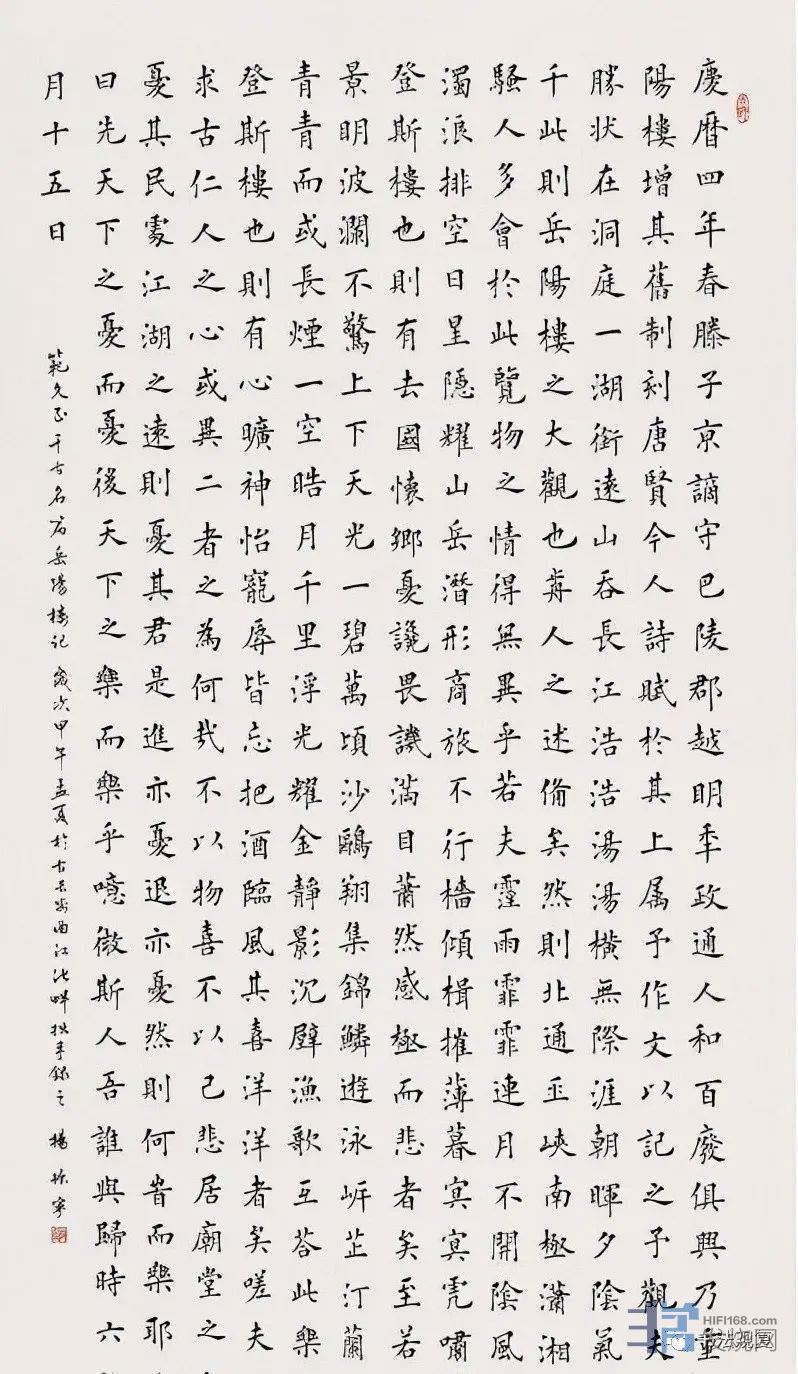 慶暦四年春滕子京謫守巴陵郡越明秊政通人和百廢俱興乃重
陽樓增其舊制刻唐賢今人詩賦於其上属予作文以記之予觀夫
勝状在洞庭一湖銜遠山吞長江浩浩湯湯橫無際涯朝暉夕陰氣
千此則岳陽樓之大觀也前人之述備矣然則北通巫峽南極瀟湘
騷人多會於此覽物之情得無異乎若夫霪雨霏霏連月不開陰風
濁浪排空日星隱耀山岳潛形商旅不行檣傾楫摧薄暮冥冥虎嘯
登斯樓也則有去國懷鄉憂讒畏譏滿目蕭然感極而悲者矣至若
景明波瀾不驚上下天光一碧萬頃沙鷗翔集錦鱗遊泳岸芷汀蘭
青青而或長煙一空皓月千里浮光耀金靜影沉璧漁歌互荅此樂
登斯樓也則有心曠神怡寵辱皆忘把酒臨風其喜洋洋者矣嗟夫
求古仁人之心或異二者之為何哉不以物喜不以己悲居廟堂之
憂其民處江湖之遠則憂其君是進亦憂退亦憂然則何時而樂耶
曰先天下之憂而憂後天下之樂而樂乎噫微斯人吾誰與歸時六
月十五日
範文正千古名篇岳陽樓記 歲次甲午孟夏於古長安曲江池畔拙手錄之 楊
HIFI168.com
书法视界